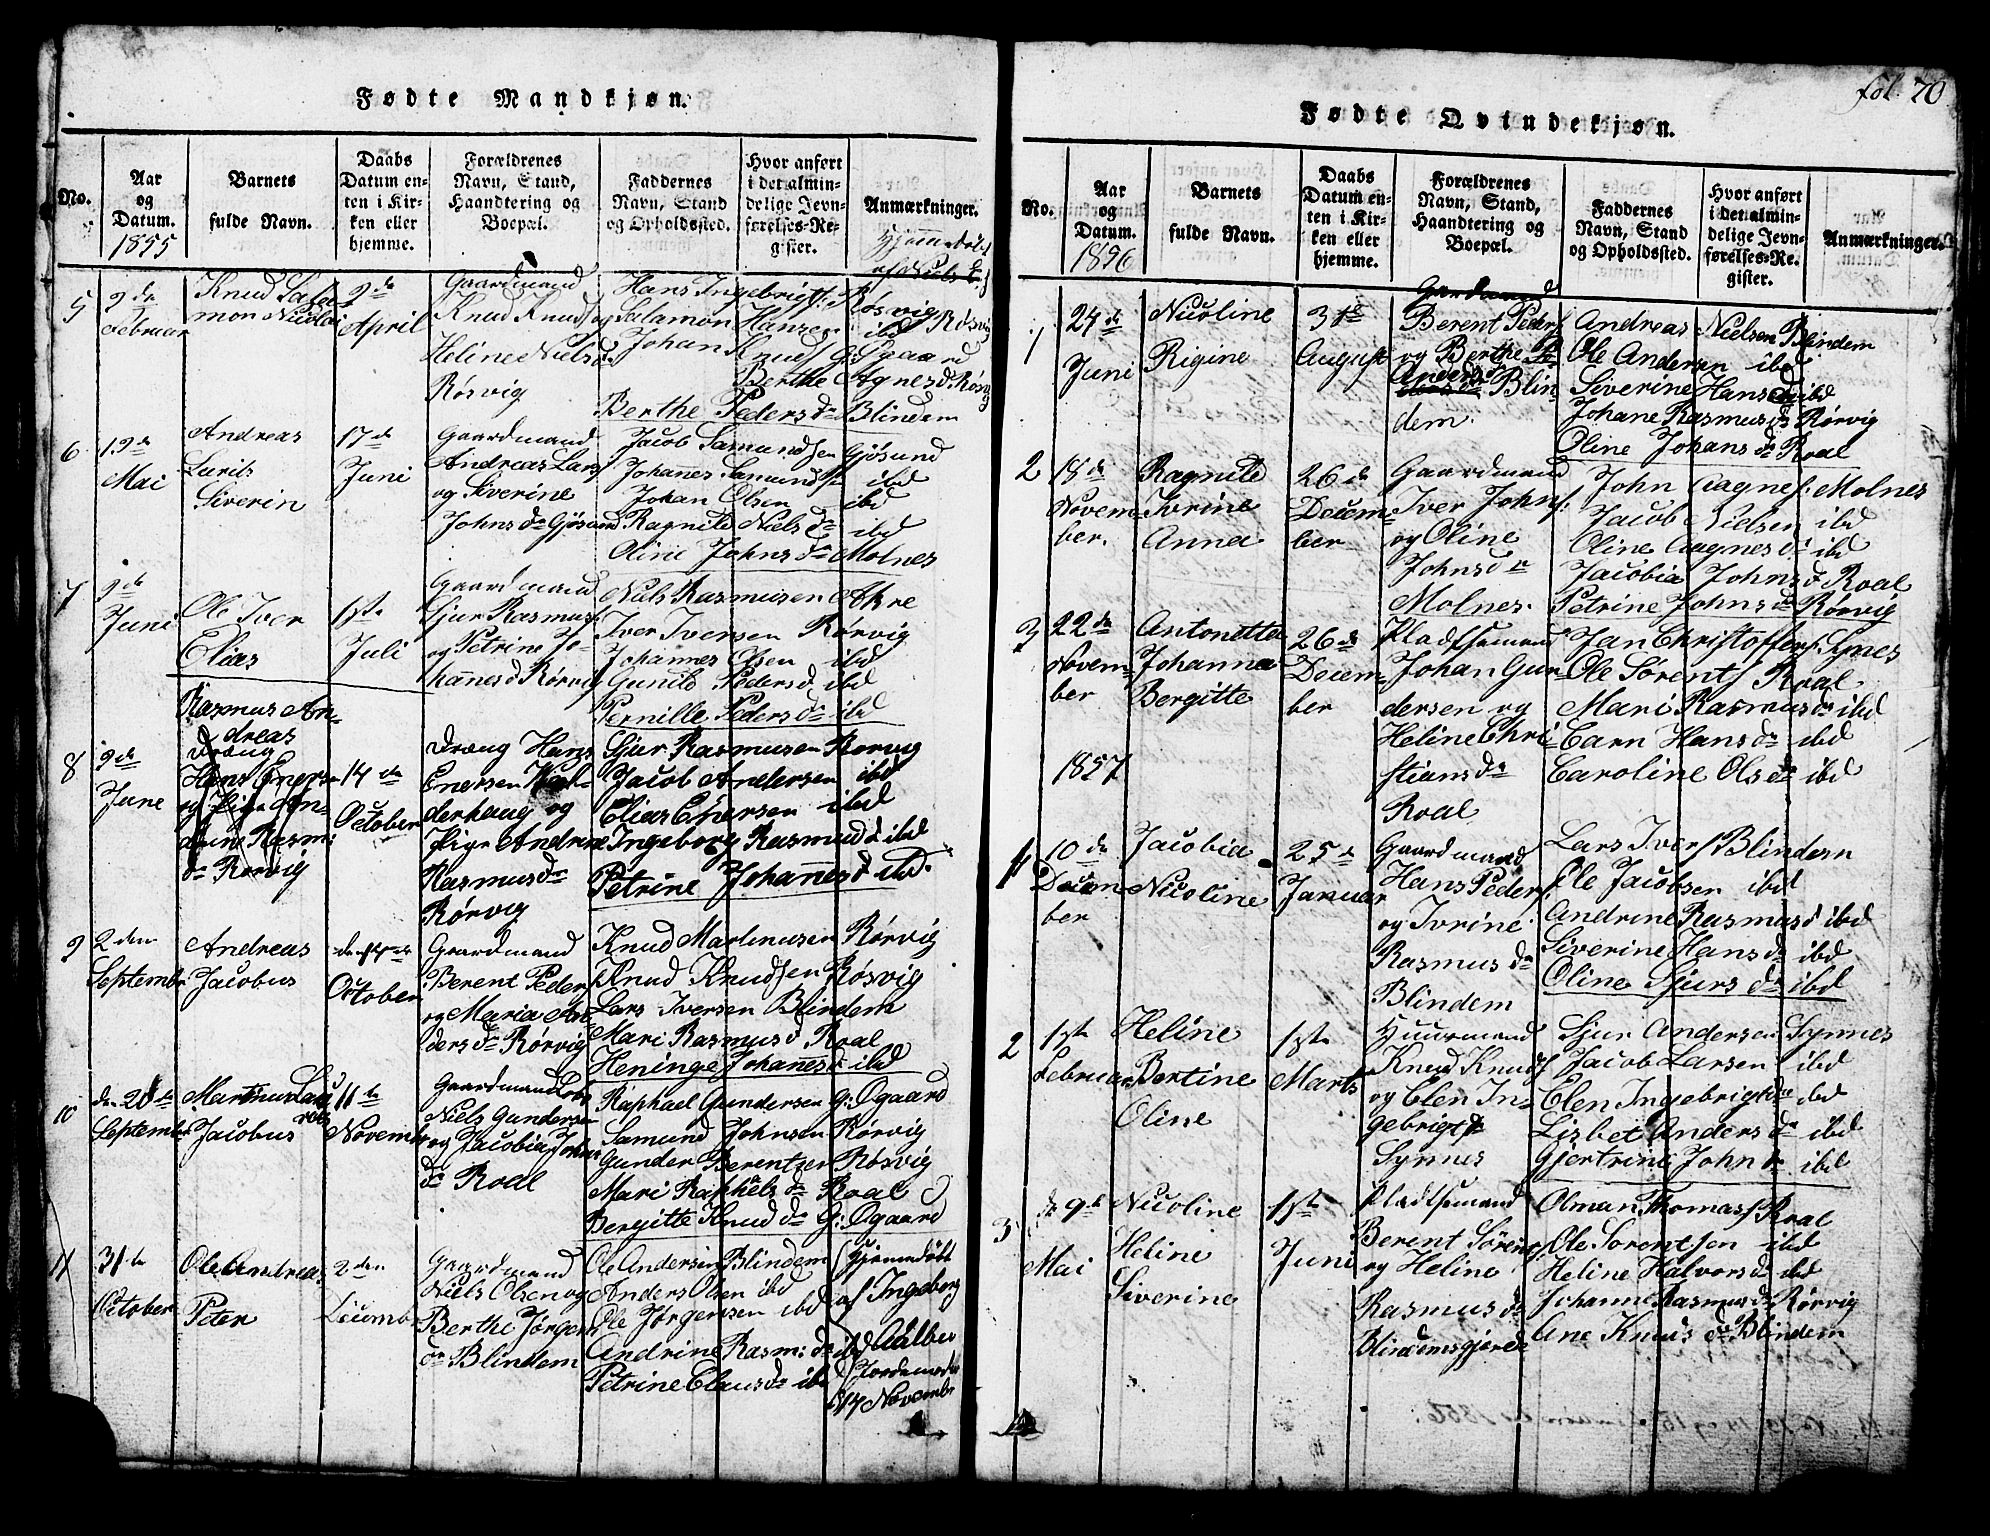 fol. 70
Fødte Mandkjøn.
No.
Aar og Datum.
1855
Barnets fulde Navn.
Daabs Datum enten i Kirken eller hjemme.
Forældrenes Navn, Stand, Haandtering og Boepæl.
Faddernes Navn, Stand og Opholdssted.
Hvor anført i det almindelige Jevnførelses-Register.
Anmærkninger.
5
9de
Februar
Knud Salo
mon Nicolai
9de
April
Gaardmand
Knud Knuds og
Heline Nielsd
Røsvig
Hans Ingebrigts: Røsvig
Salamon Hansen ibd Røsvig
Johan Knuds G: Øgaard
Berthe Agnesd Røsvig
Berthe Pedersdr Blindem
Hjemmedøbt
af Niels
6
19de
Mai
Andreas
Lurits
Siverin
17de
Juni
Gaardmand
Andreas Lars
og Siverine
Johnsdr Gjøsund
Jacob Samundsen Gjøsund
Johanes Samunds ibd
Johan Olsen ibd
Ragnild Nielsdr ibd
Oline Johnsdr Molnes
7
9de
Juni
Ole Iver
Elias
1ste
Juli
Gaardmand
Sjur Rasmus:
og Petrine Jo-
hannesd Rørvig
Niels Rasmusen Akre
Iver Iversen Rørvig
Johannes Olsen ibd
Gunild Pedersd ibd
Pernille Pedersdr ibd
8
9de
June
Rasmus An-
dreas
Dræng
Hans Eners-
og Pige An-
drine Rasm:
dr Rørvig
14de
October
Dræng Hans
Enersen Kal-
derhaug og
Pige Andrine
Rasmusdr
Rørvig
Sjur Rasmusen Rørvig
Jacob Andersen ibd
Elias Enersen ibd
Ingeborg Rasmusd ibd
Petrine Johannesd ibd.
9
2den
Septembr
Andreas
Jacobus
den 14de
October
Gaardmand
Berent Peders
og Maria An
dersdr Rørvig
Knud Martinusen Rørvig
Knud Knudsen Røsvig
Lars Iversen Blindem
Mari Rasmusd Roal
Heninge Johannesd ibd
10
den 28de
Septembr
Martinus Lau
rits
Jacobus
11te
Novembr
Gaardmand
Niels Gundersen
og Jacobia Johns
dr Roal
Raphael Gundersen G: Øgaard
Samund Johnsen Rørvig
Gunder Berentsen Røsvig
Mari Raphaelsdr Roal
Bergitte Knuddr G: Øgaard
11
31te
October
Ole Andreas
Peter
2den
Decembr
Gaardmand
Niels Olsen og
Berthe Jørgens
dr Blindem
Ole Andersen Blindem
Anders Olsen ibd
Ole Jørgensen ibd
Andrine Rasm: dr ibd
Petrine Clausdr ibd
(Hjemmedøbt
af Ingeborg
Aalbu
Jordemoder
d 17 Novembr
Fødte Qvindekjøn.
No.
Aar og Datum.
1856
Barnets fulde Navn.
Daabs Datum enten i Kirken eller hjemme.
Forældrenes Navn, Stand, Haandtering og Boepæl.
Faddernes Navn, Stand og Opholdssted.
Hvor anført i det almindelige Jevnførelses-Register.
Anmærkninger.
1
24de
Juni
Nicoline
Rigine
31te
August
Gaardmand
Berent Peders
og Berthe
Andersdr Blin
dem.
Andreas Nielsen Blindem
Ole Andersen ibd
Siverine Hansd ibd
Johane Rasmusdr Rørvig
Oline Johansdr Roal
2
18de
Novem-
ber.
Ragnild
Ivrine
Anna
26de
Decem-
ber
Gaardmand
Iver Johns:
og Oline
Johnsdr
Molnes.
John Aagnes: Molnes
Jacob Nielsen ibd
Oline Aagnesdr ibd
Jacobia Johnsd Roal
Petrine Johnsdr Rørvig
3
22de
Novem-
ber
Antonetta
Johanna
Bergitte
26de
Decem-
ber
Pladtsemand
Johan Gun-
dersen og
Heline Chri-
stiansdr
Roal
Jan Christoffers: Synes
Ole Sørents Roal
Mari Rasmusdr ibd
Carn Hansdr ibd
Caroline Olsdr ibd
1857
1
10de
Decem
ber
Jacobia
Nicoline
25de
Januar
Gaardmand
Hans Peders
og Ivrine
Rasmusdr
Blindem
Lars Ivers Blindem
Ole Jacobsen ibd
Andrine Rasmusd ibd
Siverine Hansdr ibd
Oline Sjursdr ibd
2
1ste
Februar
Heline
Bertine
Oline
1ste
Marts
Huusmand
Knud Knuds
og Elen In-
gebrigtsdr
Synnes
Sjur Andersen Synnes
Jacob Larsen ibd
Elen Ingebrigtsdr ibd
Lisbet Andersdr ibd
Gjertrine Johndr ibd
3
d 9de
Mai
Nicoline
Heline
Siverine
1ste
Juni
Pladtsemand
Berent Sørents
og Heline
Rasmusdr
Blindemsgjerde
Olman Thomas Roal
Ole Sorentsen ibd
Heline Halvorsdr ibd
Johanne Rasmusdr Rørvig
Ane Knudsdr Blindem